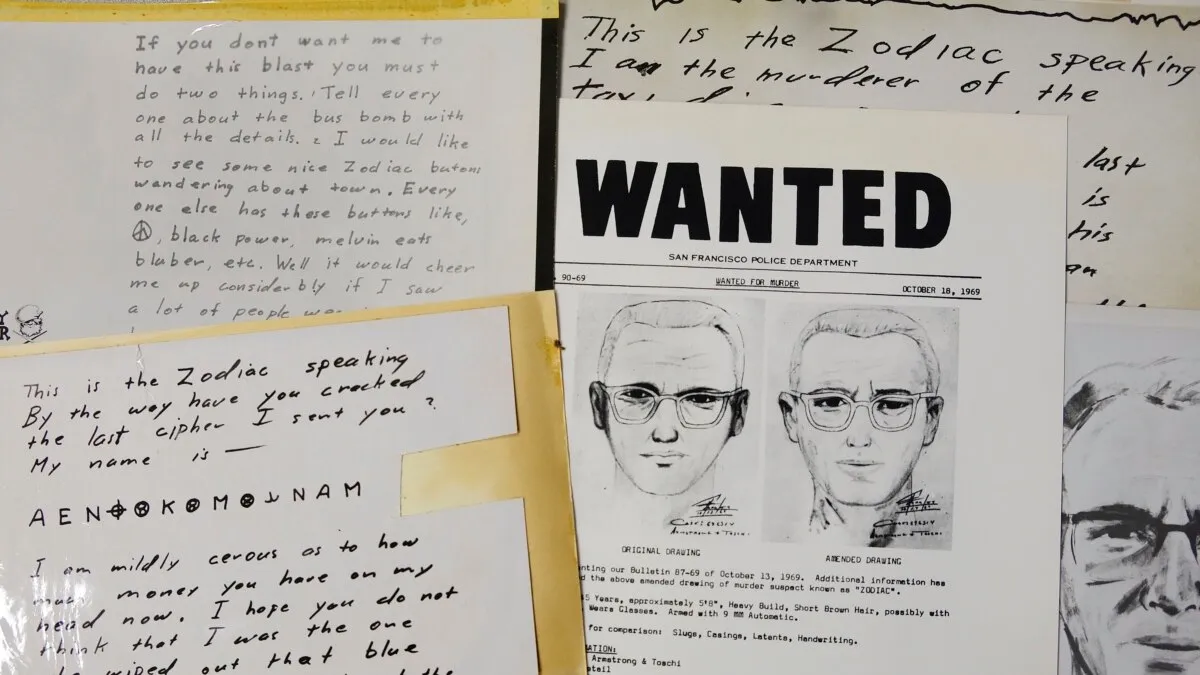 If you dont want me to
have this blast you must
do two things. Tell every
one about the bus bomb with
all the details. I would like
to see some nice Zodiac butons
wandering about town. Every
one else has these buttons like,
☮, black power, melvin eats
bluber, etc. Well it would cheer
me up considerbly if I saw
a lot of people
This is the Zodiac speaking
By the way have you cracked
the last cipher I sent you?
My name is —
A E N ⌖ ⊗ K ⊗ M ⊗ N A M
I am mildly cerous as to how
much money you have on my
head now. I hope you do not
think that I was the one
wiped out that blue
the
This is the Zodiac speaking
I am the murderer of the
last
is
his
WANTED
SAN FRANCISCO POLICE DEPARTMENT
90-69 WANTED FOR MURDER OCTOBER 18, 1969
ORIGINAL DRAWING AMENDED DRAWING
nting our Bulletin 87-69 of October 13, 1969. Additional information has
d the above amended drawing of murder suspect known as "ZODIAC".
5 Years, approximately 5'8", Heavy Build, Short Brown Hair, possibly with
Wears Glasses. Armed with 9 MM Automatic.
for comparison: Slugs, Casings, Latents, Handwriting.
ATION:
Armstrong & Toschi
etail